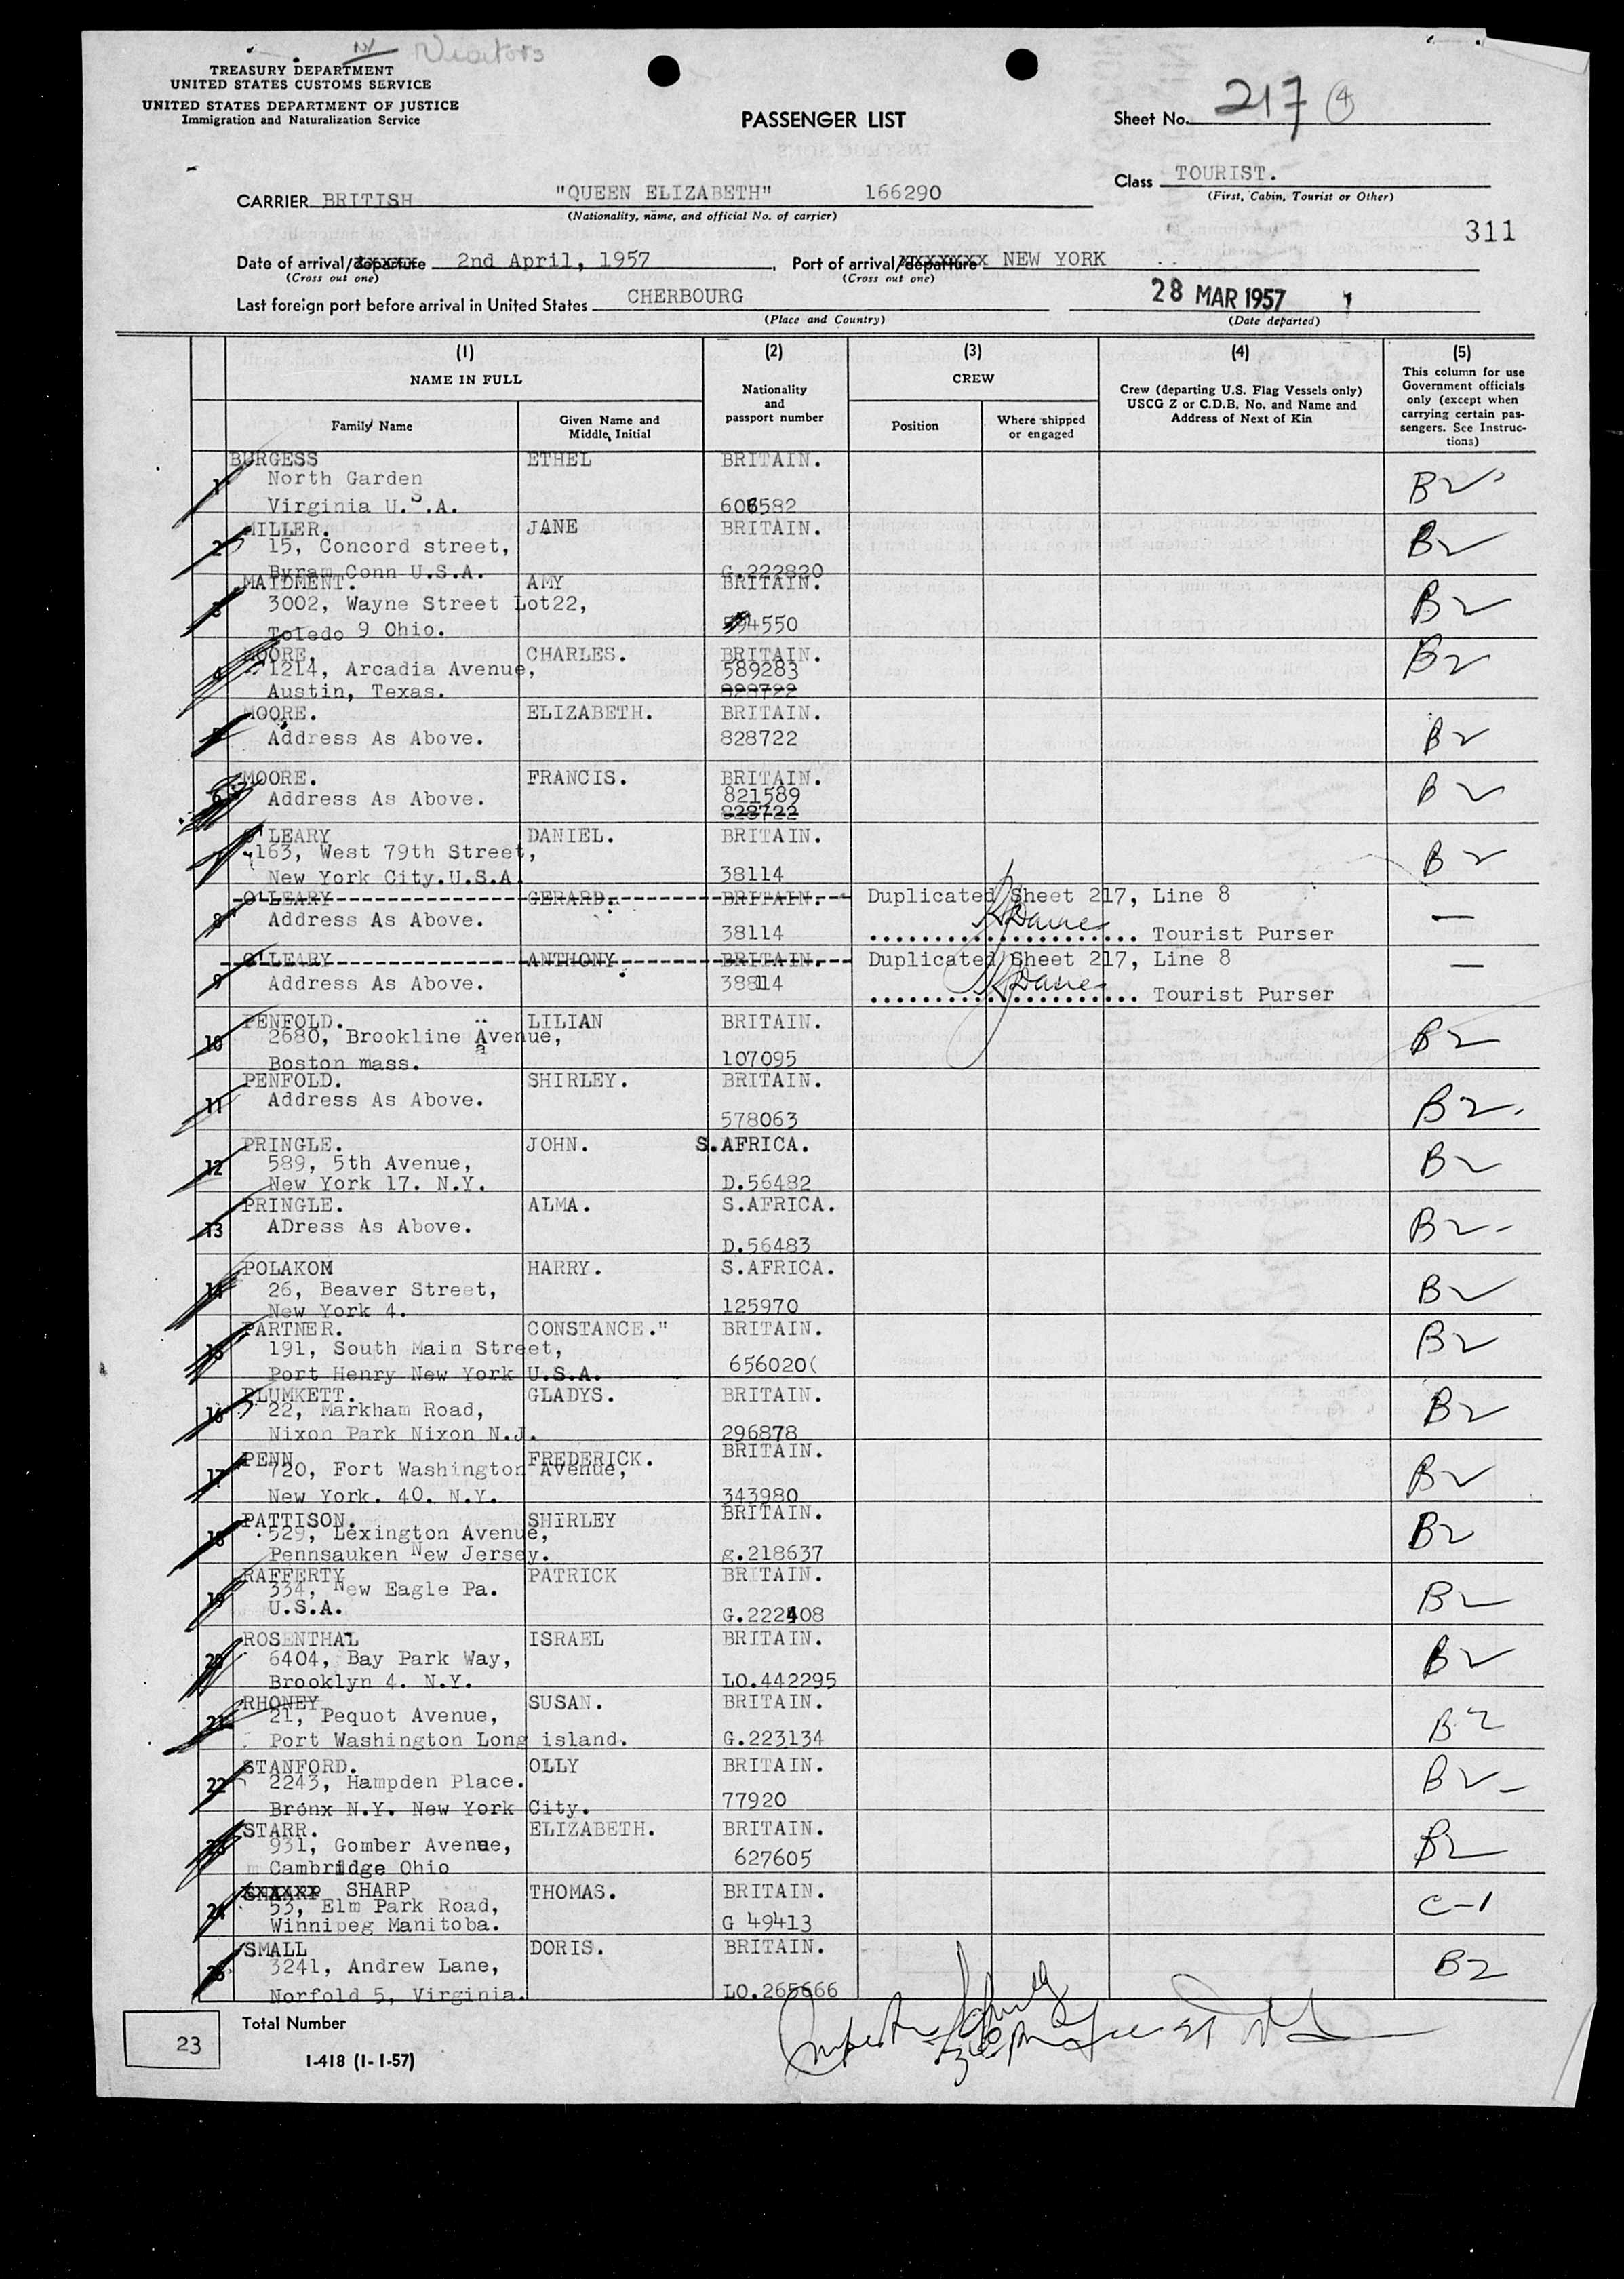 Visitors
TREASURY DEPARTMENT
UNITED STATES CUSTOMS SERVICE
UNITED STATES DEPARTMENT OF JUSTICE
Immigration and Naturalization Service
PASSENGER LIST
Sheet No. 217 4
Class TOURIST.
(First, Cabin, Tourist or Other)
CARRIER BRITISH "QUEEN ELIZABETH" 166290
(Nationality, name, and official No. of carrier)
311
Date of arrival/departure 2nd April, 1957, Port of arrival/departure NEW YORK
(Cross out one) (Cross out one)
Last foreign port before arrival in United States CHERBOURG 28 MAR 1957
(Place and Country) (Date departed)
(1) (2) (3) (4) (5)
NAME IN FULL
Nationality and passport number
CREW
Crew (departing U.S. Flag Vessels only) USCG Z or C.D.B. No. and Name and Address of Next of Kin
This column for use Government officials only (except when carrying certain passengers. See Instructions)
Family Name
Given Name and Middle Initial
Position
Where shipped or engaged
1 BURGESS ETHEL BRITAIN. B2
North Garden
Virginia U.S.A. 606582
2 MILLER. JANE BRITAIN. B2
15, Concord street,
Byram Conn U.S.A. G.222820
3 MAIDMENT. AMY BRITAIN. B2
3002, Wayne Street Lot22,
Toledo 9 Ohio. 594550
4 MOORE. CHARLES. BRITAIN. B2
1214, Arcadia Avenue, 589283
Austin, Texas. 828722
5 MOORE. ELIZABETH. BRITAIN. B2
Address As Above. 828722
6 MOORE. FRANCIS. BRITAIN. B2
Address As Above. 821589
828722
7 O'LEARY DANIEL. BRITAIN. B2
163, West 79th Street,
New York City.U.S.A. 38114
8 O'LEARY GERARD. BRITAIN. Duplicated Sheet 217, Line 8 —
Address As Above. 38114 Tourist Purser
9 O'LEARY ANTHONY. BRITAIN. Duplicated Sheet 217, Line 8 —
Address As Above. 38114 Tourist Purser
10 PENFOLD. LILIAN BRITAIN. B2
2680, Brookline Avenue,
a
Boston mass. 107095
11 PENFOLD. SHIRLEY. BRITAIN. B2.
Address As Above.
578063
12 PRINGLE. JOHN. S.AFRICA. B2
589, 5th Avenue,
New York 17. N.Y. D.56482
13 PRINGLE. ALMA. S.AFRICA. B2-
ADress As Above.
D.56483
14 POLAKOM HARRY. S.AFRICA. B2
26, Beaver Street,
New York 4. 125970
15 PARTNER. CONSTANCE." BRITAIN. B2
191, South Main Street,
Port Henry New York U.S.A. 656020(
16 PLUMKETT. GLADYS. BRITAIN. B2
22, Markham Road,
Nixon Park Nixon N.J. 296878
17 PENN FREDERICK. BRITAIN. B2
720, Fort Washington Avenue,
New York. 40. N.Y. 343980
18 PATTISON. SHIRLEY BRITAIN. B2
529, Lexington Avenue,
Pennsauken New Jersey. g.218637
19 RAFFERTY PATRICK BRITAIN. B2
334, New Eagle Pa.
U.S.A. G.222408
20 ROSENTHAL ISRAEL BRITAIN. B2
6404, Bay Park Way,
Brooklyn 4. N.Y. LO.442295
21 RHONEY SUSAN. BRITAIN. B2
21, Pequot Avenue,
Port Washington Long island. G.223134
22 STANFORD. OLLY BRITAIN. B2-
2243, Hampden Place.
Bronx N.Y. New York City. 77920
23 STARR. ELIZABETH. BRITAIN. B2
931, Gomber Avenue,
Cambridge Ohio 627605
24 SHARP THOMAS. BRITAIN. C-1
53, Elm Park Road,
Winnipeg Manitoba. G 49413
25 SMALL DORIS. BRITAIN. B2
3241, Andrew Lane,
Norfold 5, Virginia. LO.265666
23 Total Number
I-418 (1-1-57)